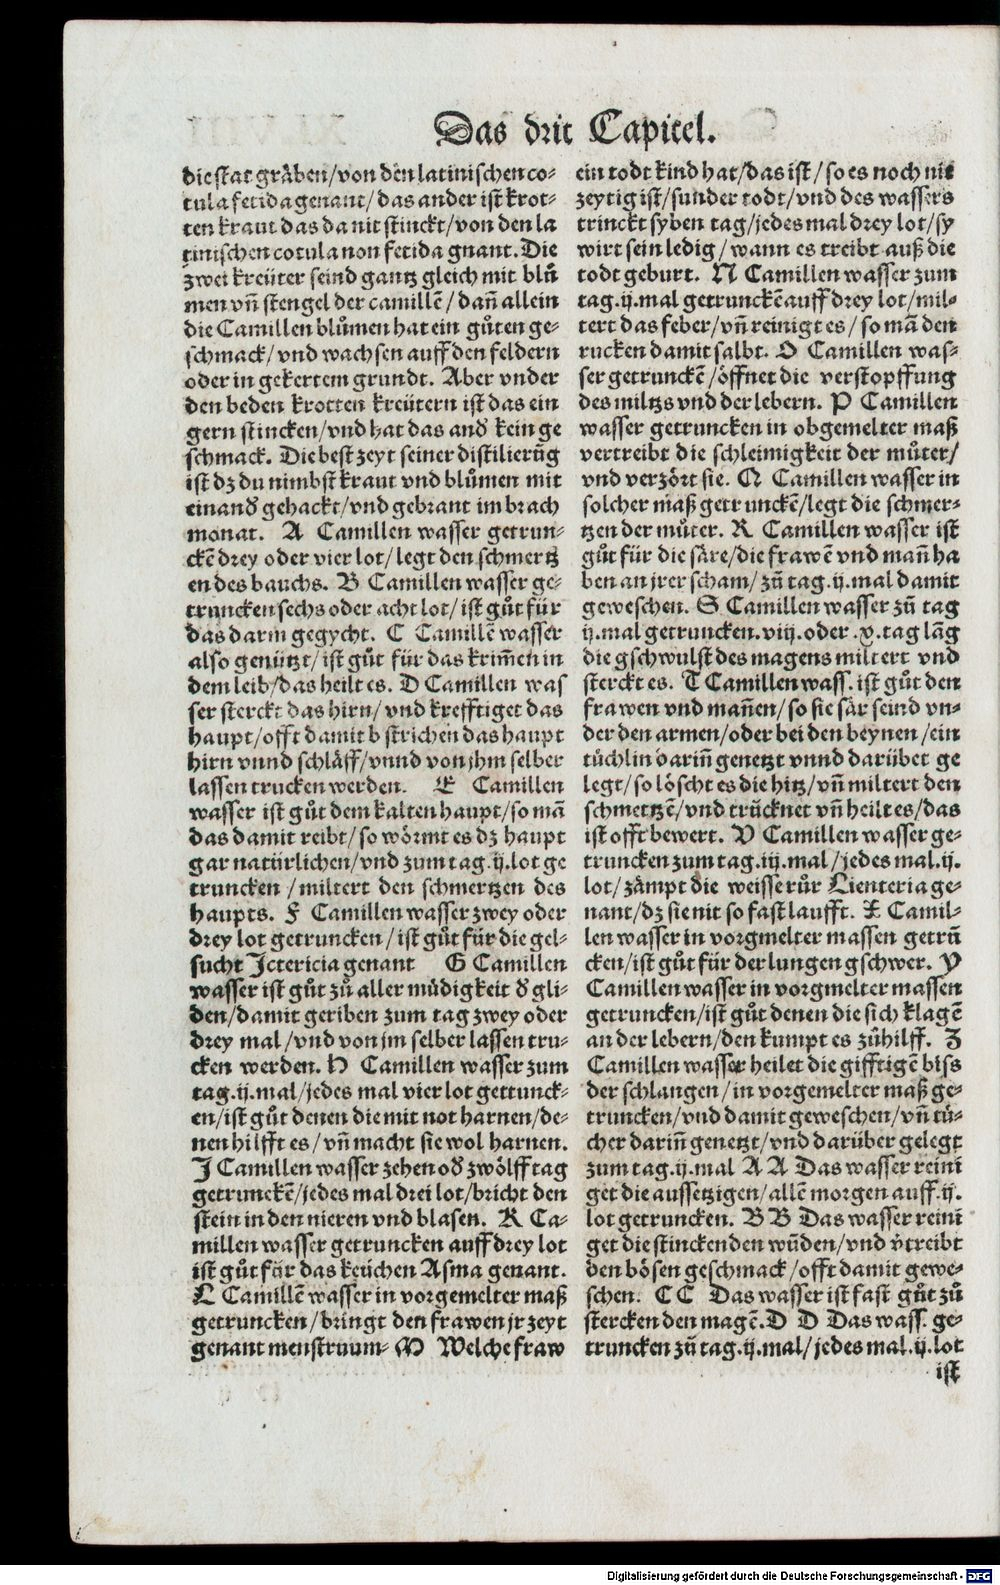 Das drit Capitel.
die stat gräben/von den latinischen co-
tula fetida genant/das ander ist krot-
ten kraut das da nit stinckt/von den la
tinischen cotula non fetida gnant. Die
zwei kreüter seind gantz gleich mit blů
men vñ stengel der camillē/dañ allein
die Camillen blůmen hat ein gůten ge-
schmack/vnd wachsen auff den feldern
oder in gekertem grundt. Aber vnder
den beden krotten kreütern ist das ein
gern stincken/vnd hat das and̕ kein ge
schmack. Die best zeyt seiner distilierūg
ist dz du nimbst kraut vnd blůmen mit
einand̕ gehackt/vnd gebrant im brach
monat. A Camillen wasser getrun-
ckē drey oder vier lot/legt den schmertz
en des bauchs. B Camillen wasser ge-
truncken sechs oder acht lot/ist gůt für
das darm gegycht. C Camillē wasser
also genützt/ist gůt für das krim̄en in
dem leib/das heilt es. D Camillen was
ser sterckt das hirn/vnd krefftiget das
haupt/offt damit b strichen das haupt
hirn vnnd schläff/vnnd von jhm selber
lassen trucken werden. E Camillen
wasser ist gůt dem kalten haupt/so mā
das damit reibt/so wörmt es dz haupt
gar natürlichen/vnd zum tag.ij.lot ge
truncken/miltert den schmertzen des
haupts. F Camillen wasser zwey oder
drey lot getruncken/ist gůt für die gel-
sucht Ictericia genant G Camillen
wasser ist gůt zů aller müdigkeit d̕ gli-
den/damit geriben zum tag zwey oder
drey mal/vnd von im selber lassen tru-
cken werden. H Camillen wasser zum
tag.ij.mal/jedes mal vier lot getrunck-
en/ist gůt denen die mit not harnen/de-
nen hilfft es/vñ macht sie wol harnen.
J Camillen wasser zehen od̕ zwölff tag
getrunckē/jedes mal drei lot/bricht den
stein in den nieren vnd blasen. K Ca-
millen wasser getruncken auff drey lot
ist gůt für das keüchen Asma genant.
L Camillē wasser in vorgemelter maß
getruncken/bringt den frawen jr zeyt
genant menstruum- M Welche fraw
ein todt kind hat/das ist/so es noch nit
zeytig ist/sunder todt/vnd des wassers
trinckt syben tag/jedes mal drey lot/sy
wirt sein ledig/wann es treibt auß die
todt geburt. N Camillen wasser zum
tag.ij.mal getrunckē auff drey lot/mil-
tert das feber/vñ reinigt es/so mā den
rucken damit salbt. O Camillen was-
ser getrunckē/öffnet die verstopffung
des miltzs vnd der lebern. P Camillen
wasser getruncken in obgemelter maß
vertreibt die schleimigkeit der můter/
vnd verzört sie. Q Camillen wasser in
solcher maß getrunckē/legt die schmer-
tzen der můter. R Camillen wasser ist
gůt für die säre/die frawē vnd mañ ha
ben an jrer scham/zů tag.ij.mal damit
geweschen. S Camillen wasser zů tag
ij.mal getruncken.viij.oder.x.tag lāg
die gschwulst des magens miltert vnd
sterckt es. T Camillen wass. ist gůt den
frawen vnd mañen/so sie sär seind vn-
der den armen/oder bei den beynen/ein
tüchlin dariñ genetzt vnnd darüber ge
legt/so löscht es die hitz/vñ miltert den
schmertzē/vnd trücknet vñ heilt es/das
ist offt bewert. V Camillen wasser ge-
truncken zum tag.iij.mal/jedes mal.ij.
lot/zämpt die weisse růr Lienteria ge-
nant/dz sie nit so fast laufft. X Camil-
len wasser in vorgmelter massen getrū
cken/ist gůt für der lungen gschwer. Y
Camillen wasser in vorgmelter massen
getruncken/ist gůt denen die sich klagē
an der lebern/den kumpt es zůhilff. Z
Camillen wasser heilet die gifftigē biss
der schlangen/in vorgemelter maß ge-
truncken/vnd damit geweschen/vñ tü-
cher dariñ genetzt/vnd darüber gelegt
zum tag.ij.mal A A Das wasser reini
get die aussetzigen/allē morgen auff.ij.
lot getruncken. B B Das wasser reini
get die stinckenden wūden/vnd v̕treibt
den bösen geschmack/offt damit gewe-
schen. C C Das wasser ist fast gůt zů
stercken den magē. D D Das wass. ge-
truncken zů tag.ij.mal/jedes mal.ij.lot
ist
Digitalisierung gefördert durch die Deutsche Forschungsgemeinschaft - DFG